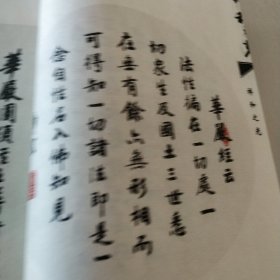 華嚴經云
法性徧在一切處一
切衆生及國土三世悉
在無有餘亦無形相而
可得知一切諸法即是一
念自性名入佛知見
華嚴圓頓